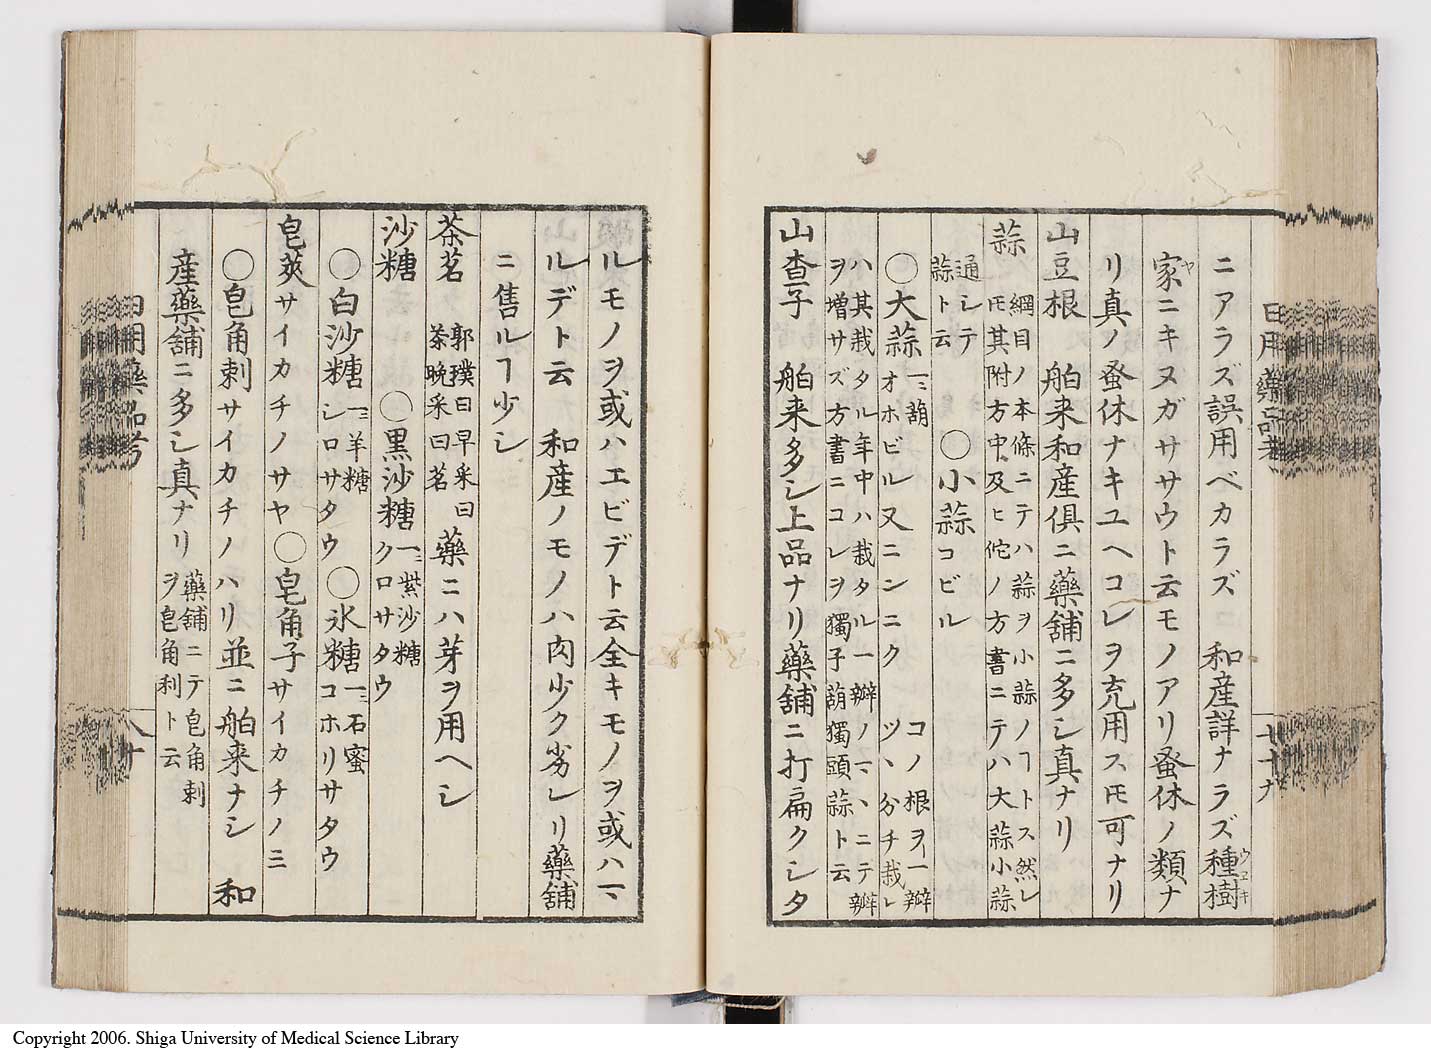 ニアラズ誤用ベカラズ 和産詳ナラズ種樹
ウヱキ
家ニキヌガササウト云モノアリ蚤休ノ類ナ
ヤ
リ真ノ蚤休ナキユヘコレヲ充用スㇳモ可ナリ
山豆根 舶来和産倶ニ藥舗ニ多シ真ナリ
蒜 綱目ノ本條ニテハ蒜ヲ小蒜ノヿトス然レ
ㇳモ其附方中及ヒ佗ノ方書ニテハ大蒜小蒜
通シテ
蒜ト云 ○小蒜コビル
○大蒜一ニ葫オホビル又ニンニク コノ根ヲ一瓣
ツヽ分チ栽レ
ハ其栽タル年中ハ栽タル一瓣ノマヽニテ瓣
ヲ増サズ方書ニコレヲ獨子葫獨頭蒜ト云
山査子 舶来多シ上品ナリ藥舗ニ打扁クシタ
日用藥品考
七十九
ルモノヲ或ハエビデト云全キモノヲ或ハマヽ
ルデト云 和産ノモノハ肉少ク劣レリ藥舗
ニ售ルヿ少シ
茶茗 郭璞曰早采曰
茶晩采曰茗 藥ニハ芽ヲ用ヘシ
沙糖 ○黒沙糖一ニ紫沙糖クロサタウ
○白沙糖一ニ羊糖シロサタウ ○氷糖一ニ石蜜コホリサタウ
皂莢サイカチノサヤ ○皂角子サイカチノミ
○皂角刺サイカチノハリ並ニ舶来ナシ 和
産藥舗ニ多シ真ナリ 藥舗ニテ皂角刺
ヲ皂角利ト云
日用藥品考
八十
Copyright 2006. Shiga University of Medical Science Library